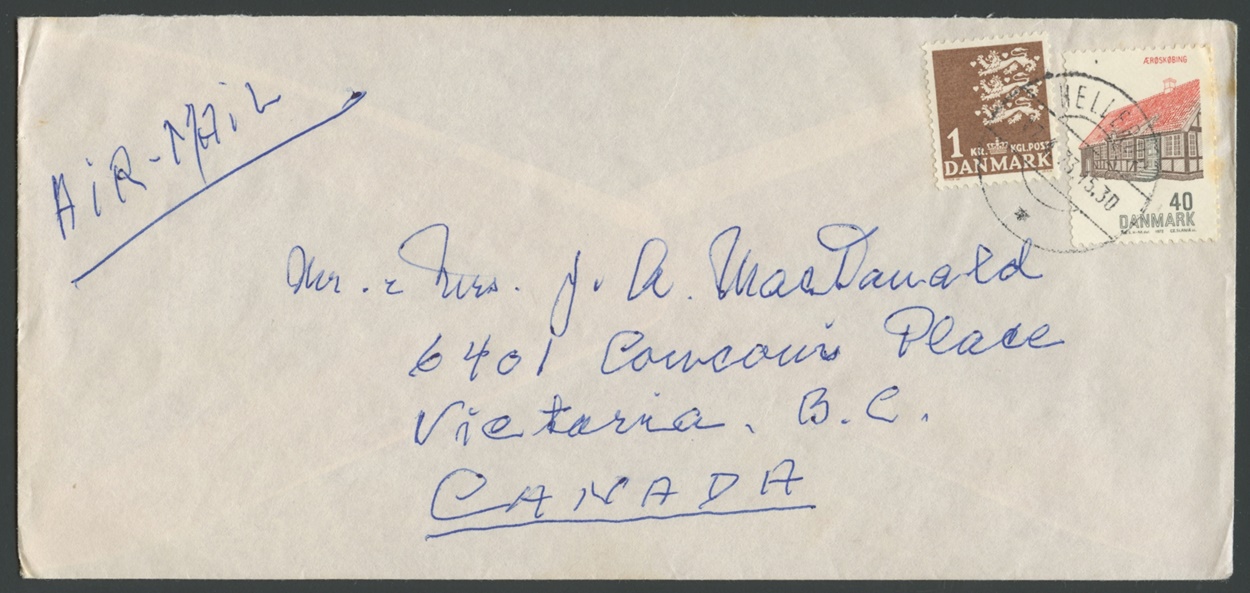 AIR-MAIL
ÆRØSKØBING
1 KR. KGL.POST
DANMARK
40
DANMARK
15.30
Mr. & Mrs. J. A. MacDonald
6401 Place
Victoria. B.C.
CANADA